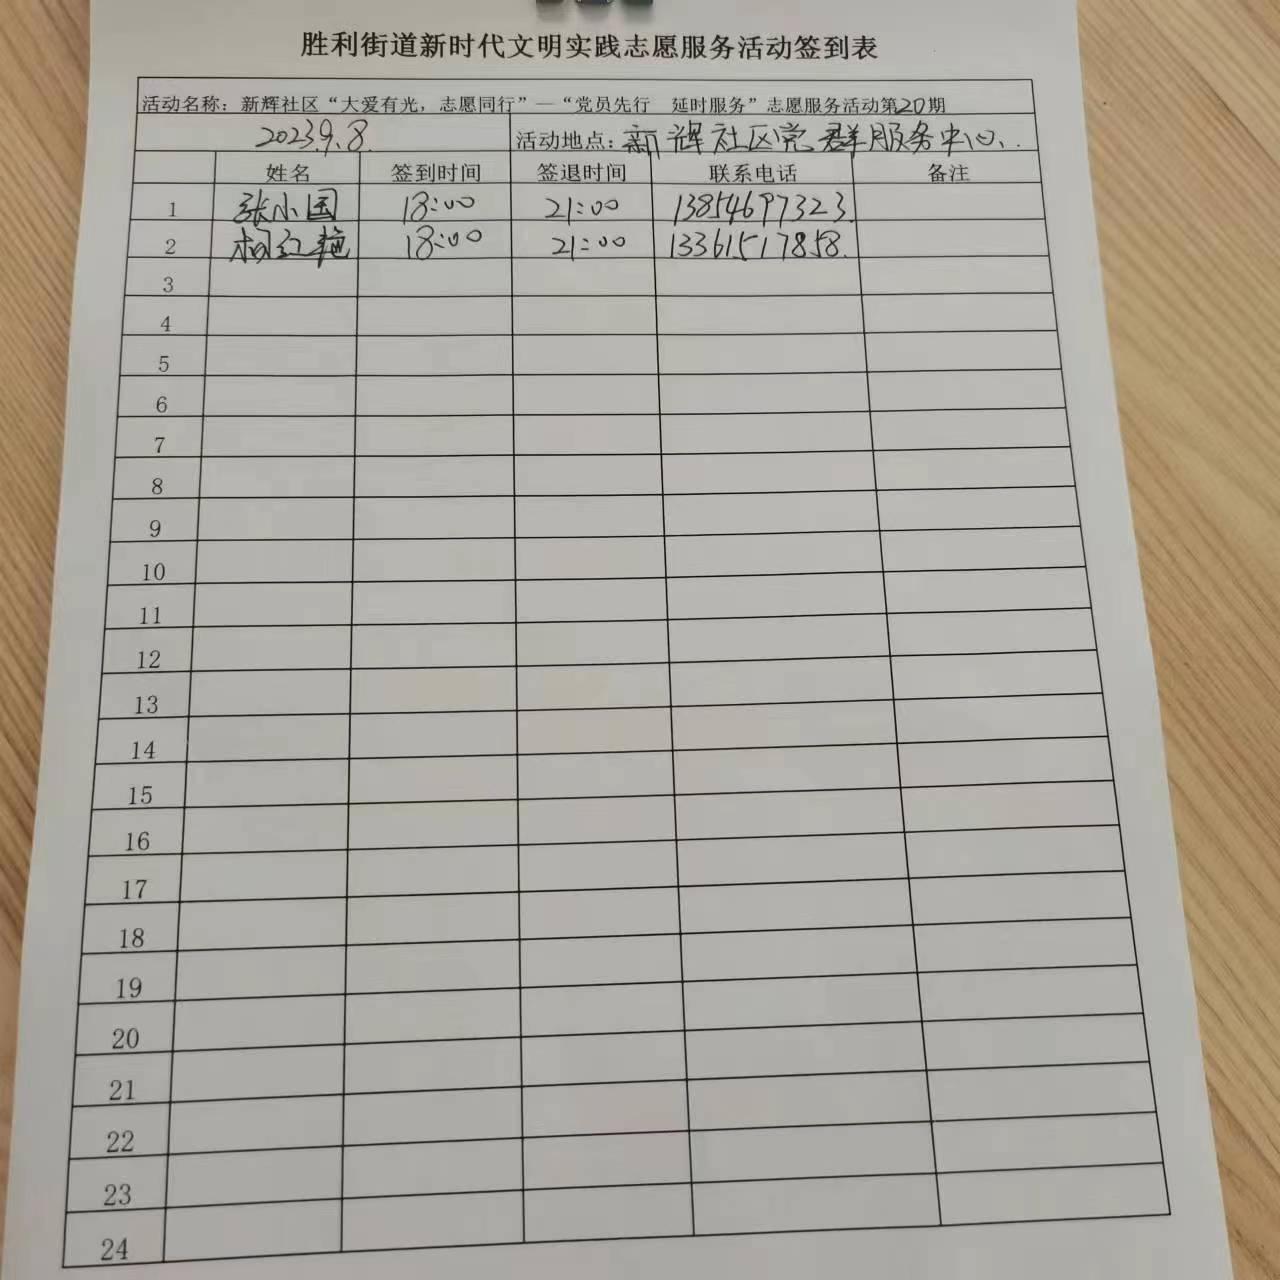 胜利街道新时代文明实践志愿服务活动签到表
活动名称：新辉社区“大爱有光，志愿同行”—“党员先行 延时服务”志愿服务活动第20期
2023.9.8. 活动地点：新辉社区党群服务中心.
姓名 签到时间 签退时间 联系电话 备注
1 张小国 18:00 21:00 13854697323.
2 红艳 18:00 21:00 13361517858.
3
4
5
6
7
8
9
10
11
12
13
14
15
16
17
18
19
20
21
22
23
24